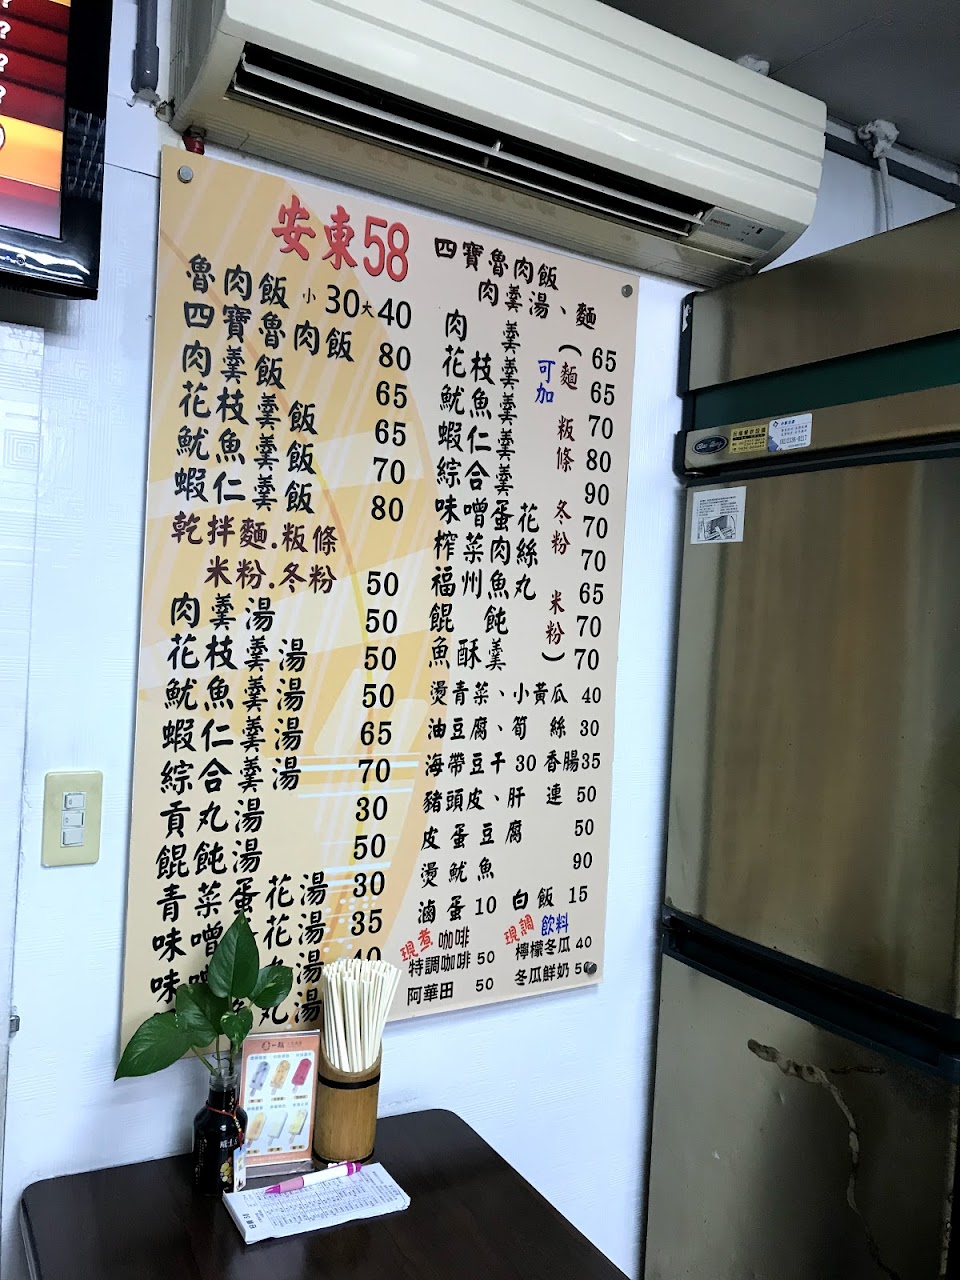 安東58
魯肉飯 小30大40
四寶魯肉飯 80
肉羹飯 65
花枝羹飯 65
魷魚羹飯 70
蝦仁羹飯 80
乾拌麵.粄條
米粉.冬粉 50
肉羹湯 50
花枝羹湯 50
魷魚羹湯 50
蝦仁羹湯 65
綜合羹湯 70
貢丸湯 30
餛飩湯 50
青菜蛋花湯 30
味噌花湯 35
味湯 40
丸湯
四寶魯肉飯
肉羹湯、麵
肉羹 65
花枝羹 65
魷魚羹 70
蝦仁羹 80
綜合羹 90
味噌蛋花 70
榨菜肉絲 70
福州魚丸 65
餛飩 70
魚酥羹 70
可加
(麵 粄條 冬粉 米粉)
燙青菜、小黃瓜 40
油豆腐、筍絲 30
海帶豆干 30 香腸35
豬頭皮、肝連 50
皮蛋豆腐 50
燙魷魚 90
滷蛋 10 白飯 15
現煮 咖啡
特調咖啡 50
阿華田 50
現調 飲料
檸檬冬瓜 40
冬瓜鮮奶 50